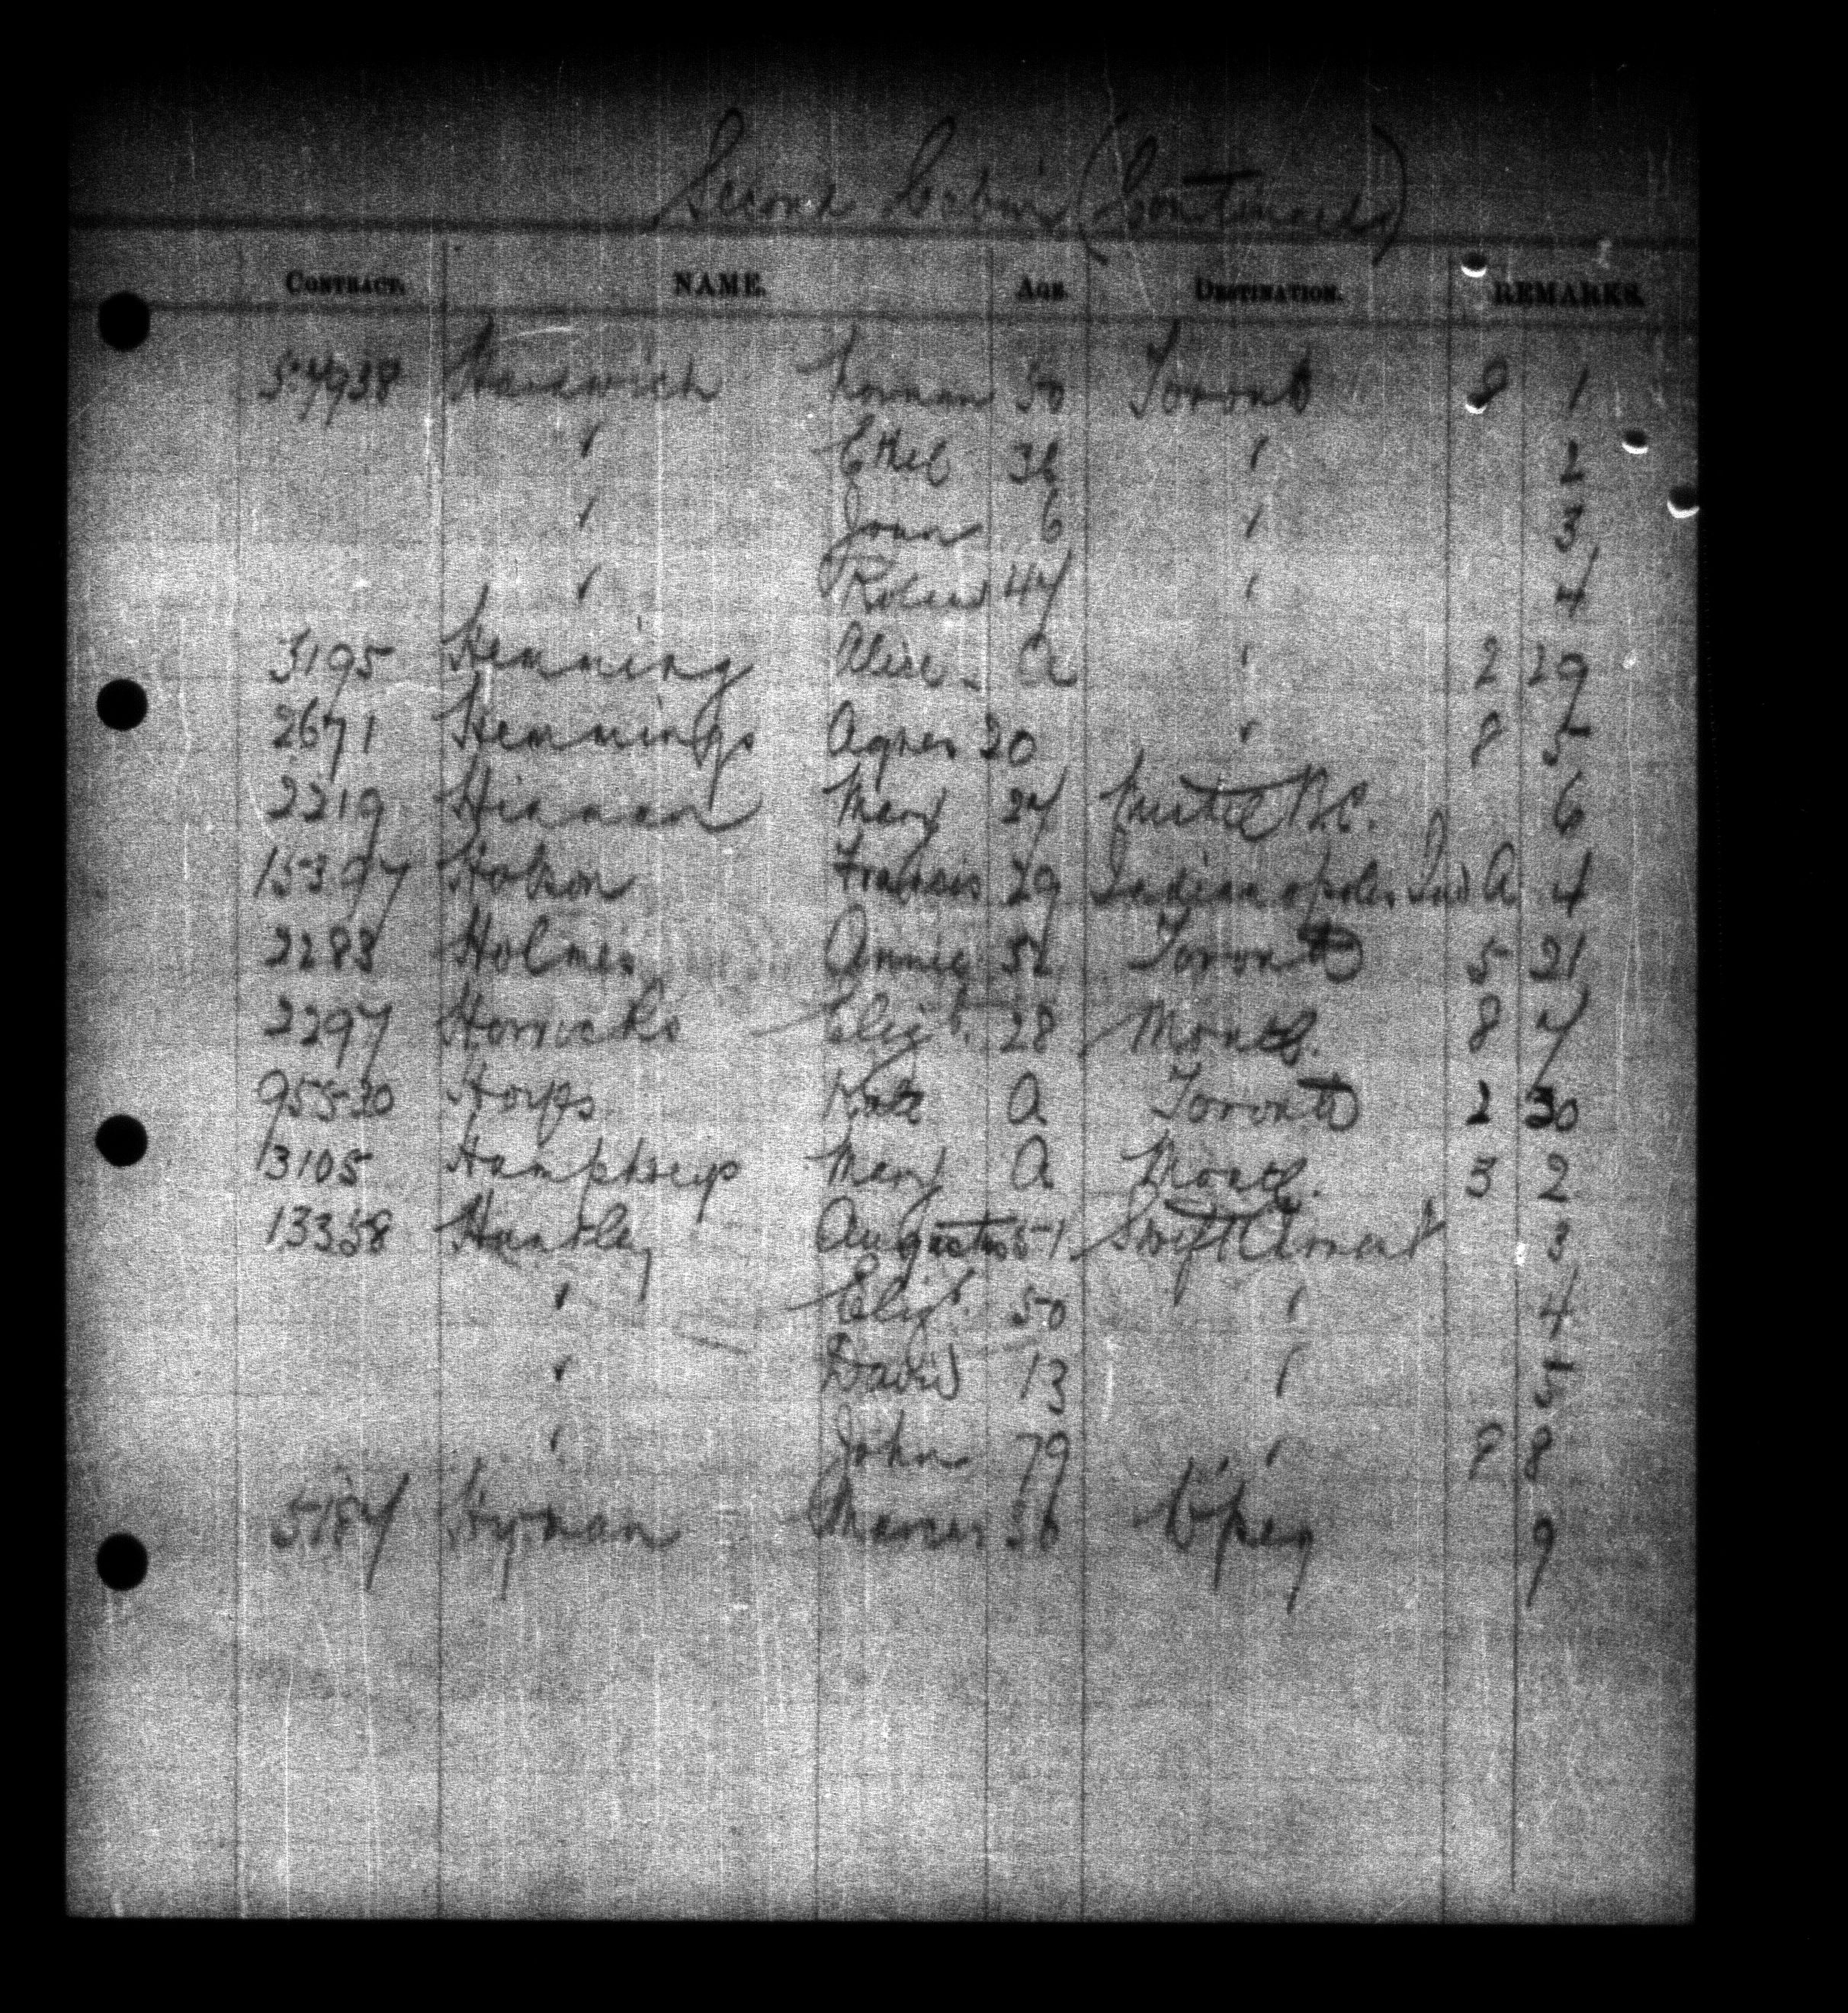 Second Cabin (Continued)
CONTRACT. NAME. AGE. DESTINATION. REMARKS.
54938 Norman 30 Toronto 8 1
" Ethel 36 " 2
" Joan 6 " 3
" 47 " 4
3195 Hemming Alice A " 2 29
2671 Hemmings Agnes 20 " 8 5
2219 Hinman Mary 27 B.C. 6
15397 Hobson Francis 29 Indianapolis Ind A 4
2283 Holmes Annie 52 Toronto 5 21
2297 Horrocks Elizt. 28 Montl. 8 7
95530 Kate A Toronto 2 30
13105 Humphreys Mary A Montl. 3 2
13358 Huntley Augustus 51 Swift Current 3
" Elizt. 50 " 4
" David 13 " 5
" John 79 " 8 8
5187 Hyman 36 W'peg 9